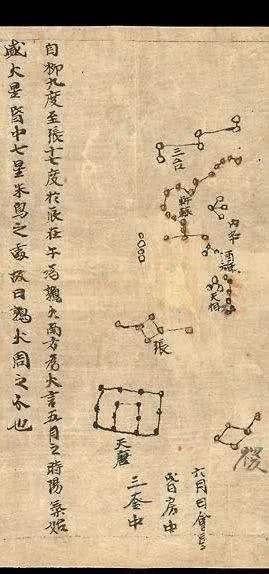 三台
軒轅
內平
酒旗
天相
張
稷
六月日會
昏房中
奎中
天廟
自柳九度至張十七度於辰在午為鶉火南方為火言五月之時陽氣始
盛火星昏中七星朱鳥之處故曰鶉火周之分也